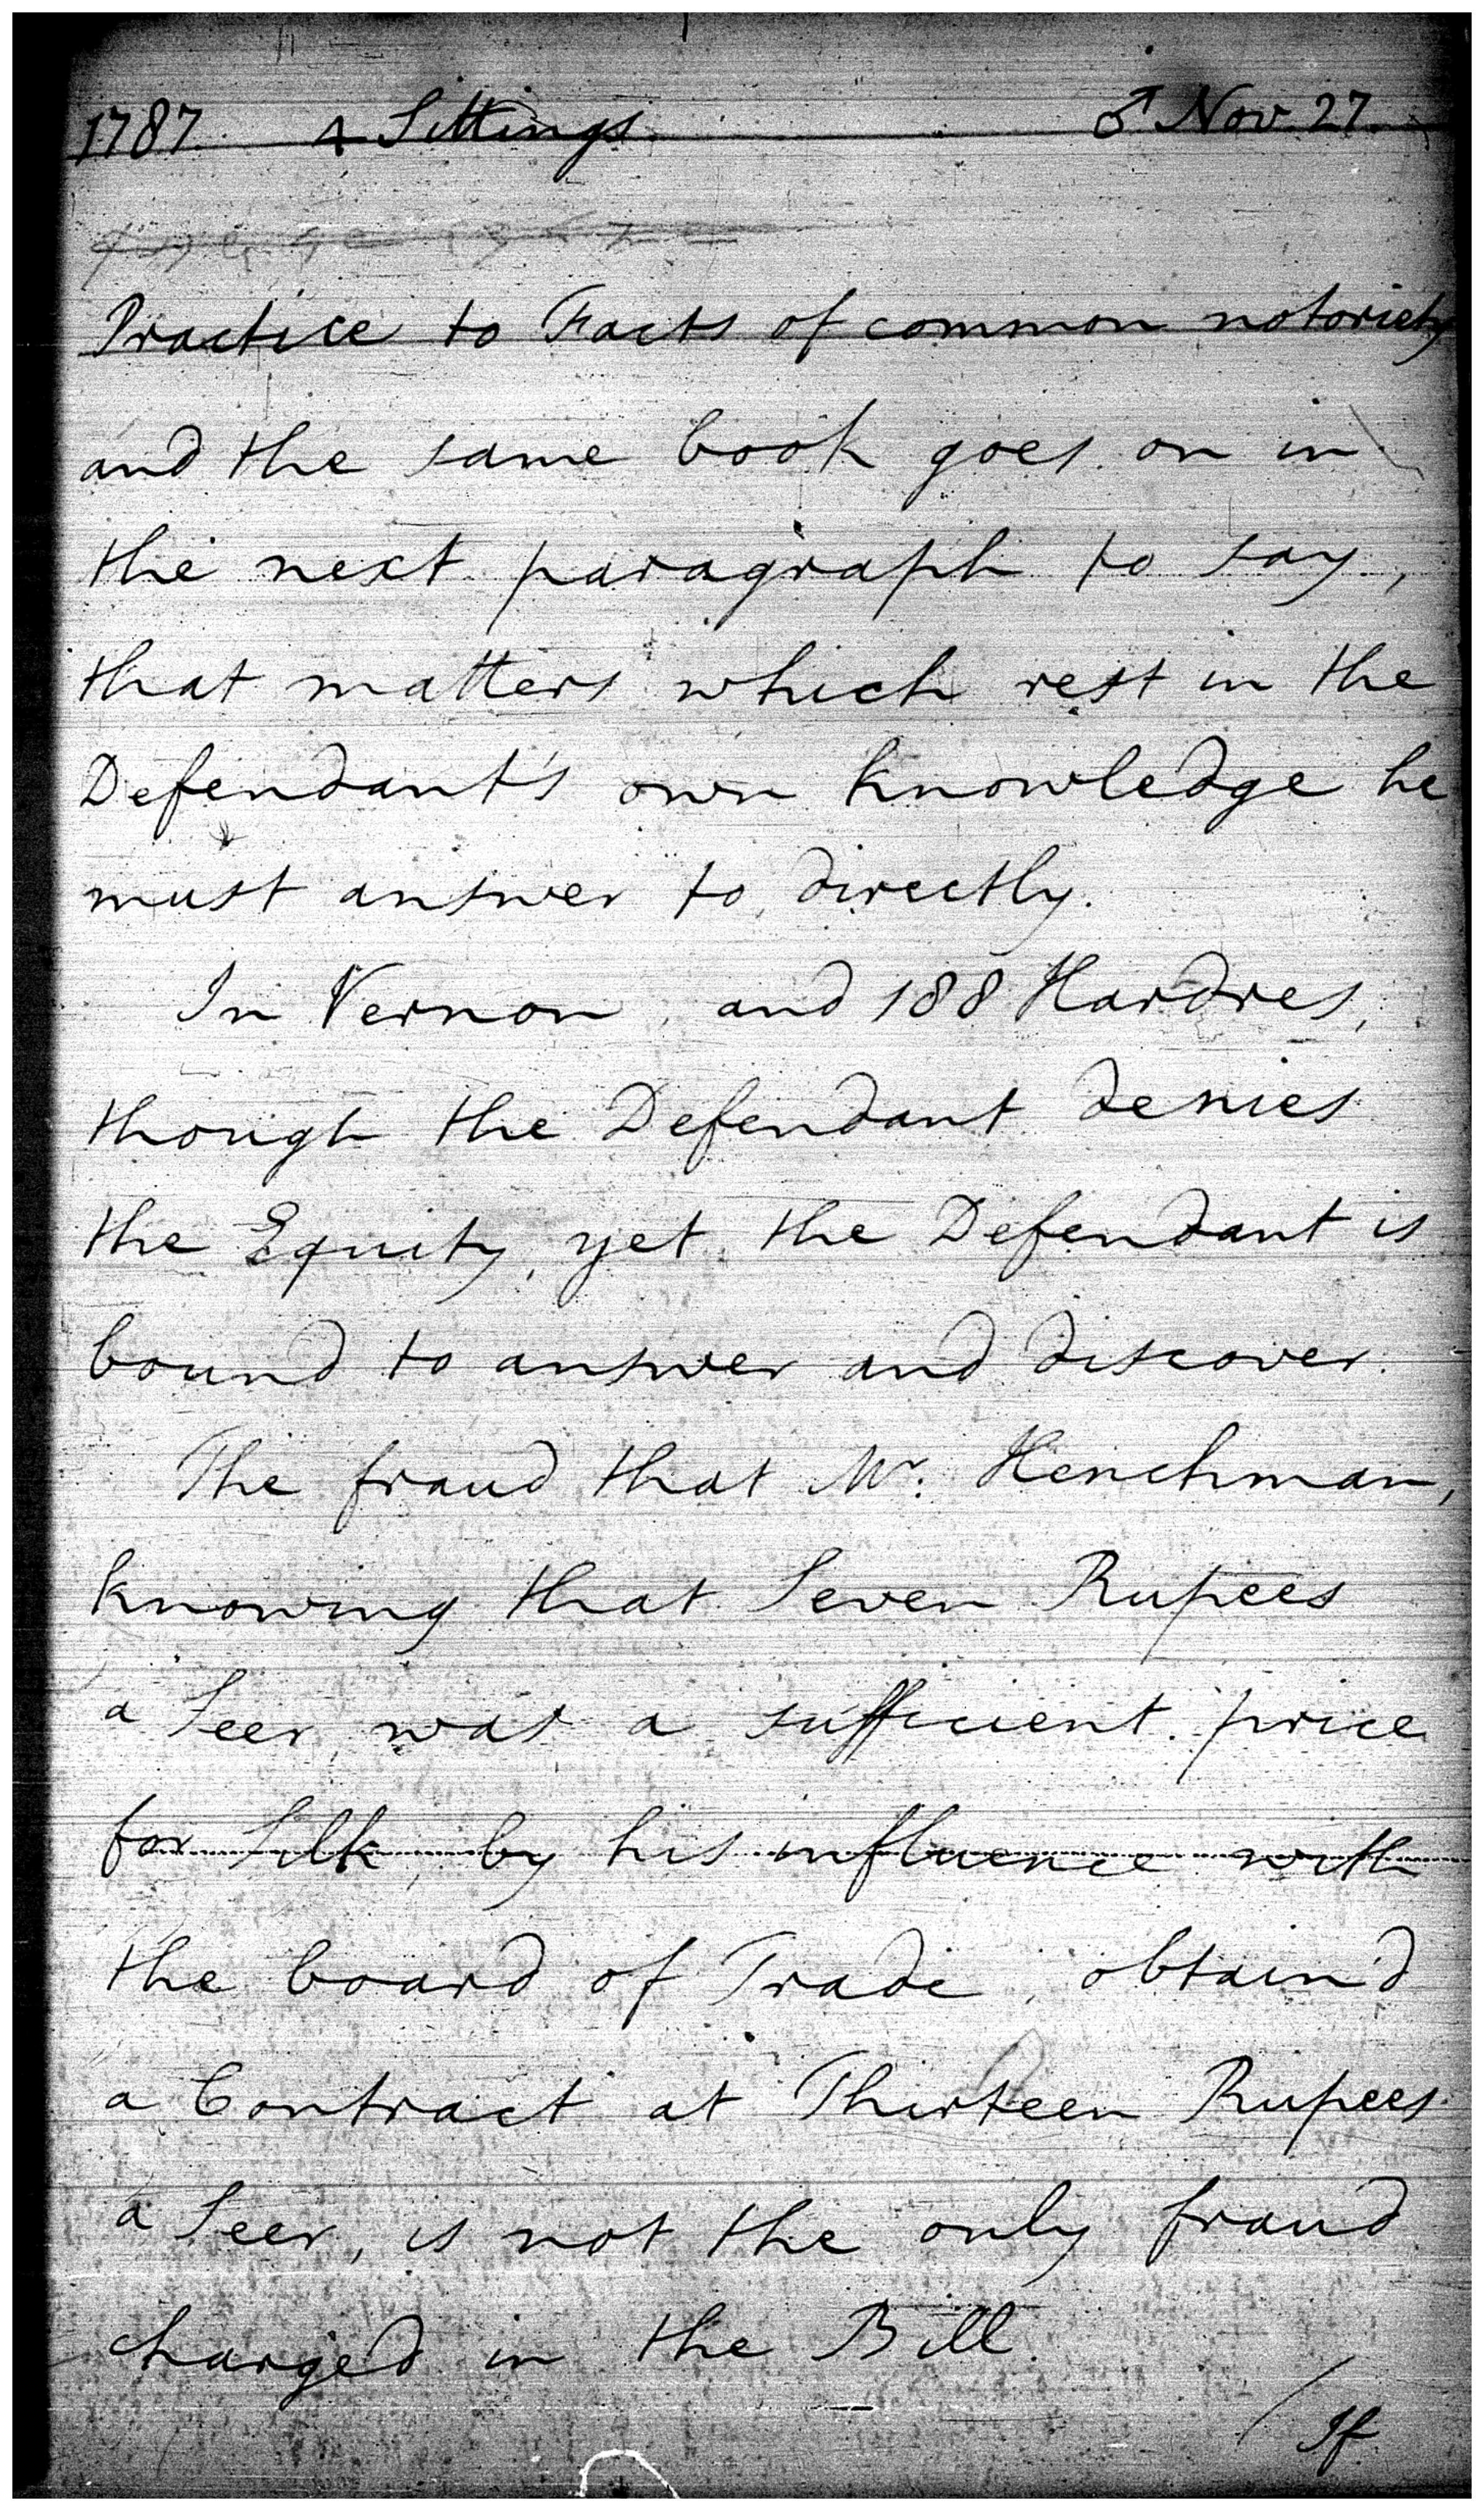 1787. 4 Sittings ♂ Nov. 27.
Practice to Facts of common notoriety
and the same book goes on in
the next paragraph to say,
that matters which rest in the
Defendant's own knowledge he
must answer to directly.
In Vernon, and 188 Hardres,
though the Defendant denies
the Equity, yet the Defendant is
bound to answer and discover.
The fraud that Mr. Henchman,
knowing that Seven Rupees
a Seer was a sufficient price
for Silk, by his influence with
the board of Trade, obtain'd
a Contract at Thirteen Rupees
a Seer, is not the only fraud
charged in the Bill.
If